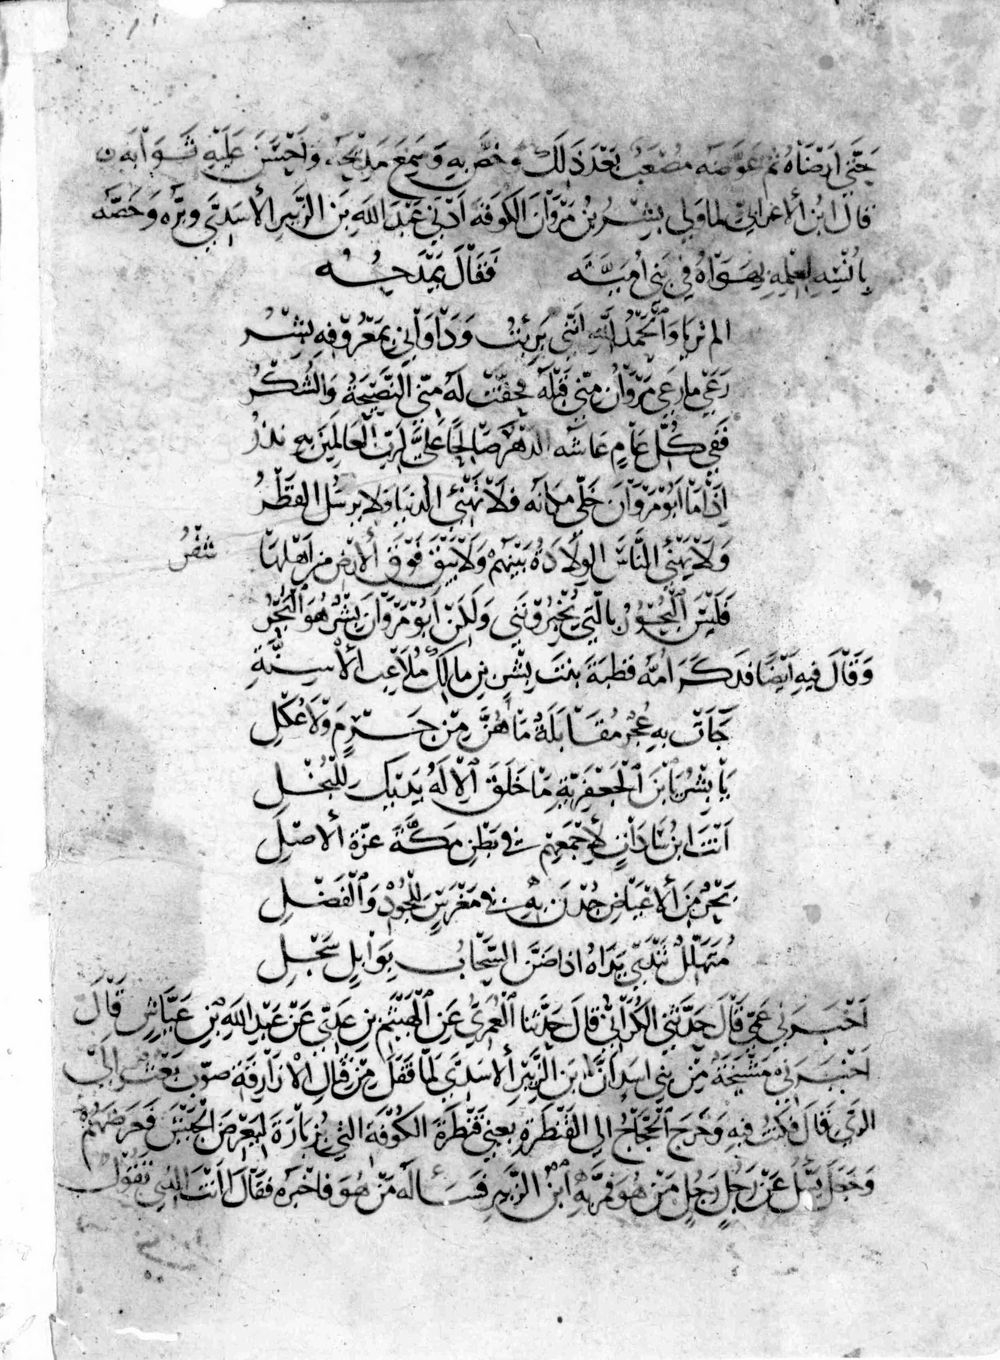 حتى ارضاه ثم عوضه مصعب بعد ذلك وخص به وسمع مديحه واحسن عليه ثوابه
قال ابن الاعرابي لما ولي بشر بن مروان الكوفة ادنى عبد الله بن الزبير الاسدي وبره وخصه
بانسه لعلمه بهواه في بني امية فقال يمدحه
الم ترني والحمد لله انني برئت وداواني بمعروفه بشر
رعى ما رعى مروان مني قبله فحقت له مني النصيحة والشكر
ففي كل عام عاشه الدهر صالحا علي لرب العالمين به نذر
اذا ما ابو مروان خلى مكانه فلا تهنئ الدنيا ولا يرسل القطر
ولا يهنئ الناس الولادة بينهم ولا يبق فوق الارض من اهلها شفر
فليس البحور بالتي تخبرونني ولكن ابو مروان بشر هو البحر
وقال فيه ايضا فذكر امه قطبة بنت بشر بن مالك ملاعب الاسنة
جات به عجز مقابلة ما هن من جرم ولا عكل
يا بشر يا ابن الجعفرية ما خلق الاله يديك للبخل
انت ابن سادات لاجمعهم في بطن مكة عزة الاصل
بحر من الاعياص جدن به في مغرس للجود والفضل
متهلل تندى يداه اذا ضن السحاب بوابل سجل
اخبرني عمي قال حدثني الكراني قال حدثنا العمري عن الهيثم بن عدي عن عبد الله بن عياش قال
اخبرني مشيخة من بني اسد ان ابن الزبير الاسدي لما قفل من قتال الازارقة صوب بعث الى
الري قال فكنت فيه وخرج الحجاج الى القنطرة يعني قنطرة الكوفة التي بزبارة ليعرض الجيش فعرضهم
وجعل يسل عن رجل رجل من هو فمر به ابن الزبير فساله من هو فاخبره فقال انت الذي تقول